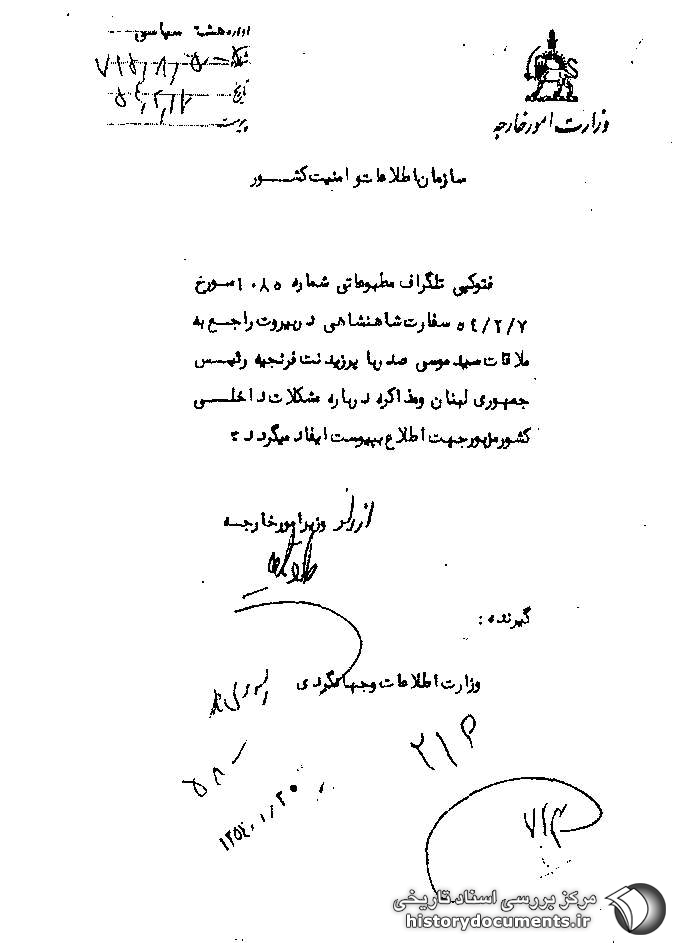 وزارت امور خارجه
اداره هشتم سیاسی
شماره
تاریخ
پیوست
سازمان اطلاعات و امنیت کشور
فتوکپی تلگراف مطبوعاتی شماره ۱۰۸۵ مورخ
۵٤/۲/۷ سفارت شاهنشاهی در بیروت راجع به
ملاقات سید موسی صدر با پرزیدنت فرنجیه رئیس
جمهوری لبنان ومذاکره درباره مشکلات داخلی
کشور مزبور جهت اطلاع بپیوست ایفاد میگردد :
از طرف وزیر امور خارجه
گیرنده :
وزارت اطلاعات وجهانگردی
۲۱۳
۵۸۰
۷۱۳
مرکز بررسی اسناد تاریخی
historydocuments.ir